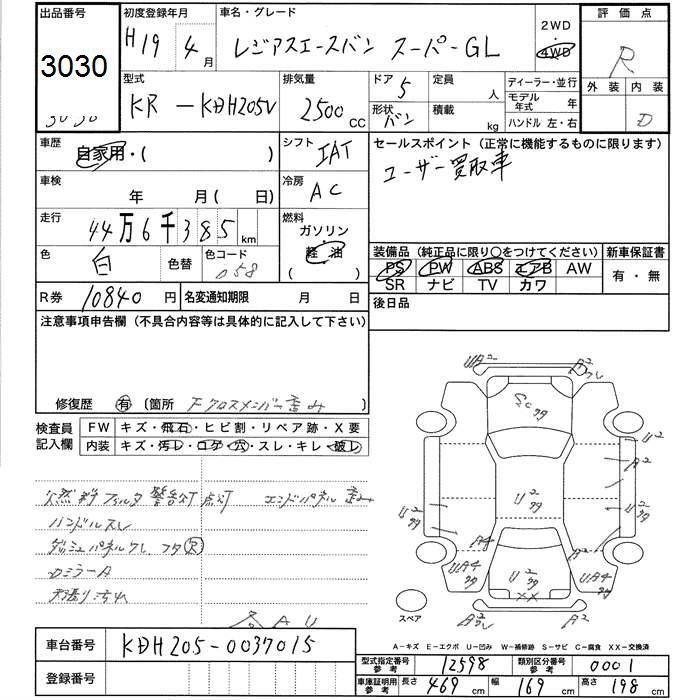 出品番号
3030
初度登録年月
H19 4月
車名・グレード
レジアスエースバン スーパーGL
2WD
4WD
評価点
R
外装 内装
D
型式
KR-KDH205V
排気量
2500 CC
ドア 5
形状 バン
定員 人
積載 kg
ディーラー・並行
モデル年式 年
ハンドル 左・右
車歴
自家用・( )
シフト IAT
車検 年 月( 日)
冷房 AC
走行 44万6千385 km
燃料
ガソリン
軽油
( )
色 白 色替 色コード 058
セールスポイント(正常に機能するものに限ります)
ユーザー買取車
装備品(純正品に限り○をつけてください)
PS PW ABS エアB AW
SR ナビ TV カワ
新車保証書
有・無
R券 10840円 名変通知期限 月 日
後日品
注意事項申告欄(不具合内容等は具体的に記入して下さい)
修復歴 有 〔箇所 Fクロスメンバー歪み 〕
検査員記入欄
FW キズ・飛石・ヒビ割・リペア跡・X要
内装 キズ・汚レ・コゲ・穴・スレ・キレ・破レ
燃料フィルタ警告灯点灯 エンドパネル歪み
ハンドルスレ
ダッシュパネルワレ フタ欠
ミラーA
天張り汚れ
UA2 A2
U2
A2
U2
A4
UA4
U2
UA4
XX
A2
スペア
A-キズ E-エクボ U-凹み W-補修跡 S-サビ C-腐食 XX-交換済
車台番号 KDH205-0037015
登録番号
型式指定番号 参考 12598 類別区分番号 参考 0001
車庫証明用 参考 長さ 469 cm 幅 169 cm 高さ 198 cm